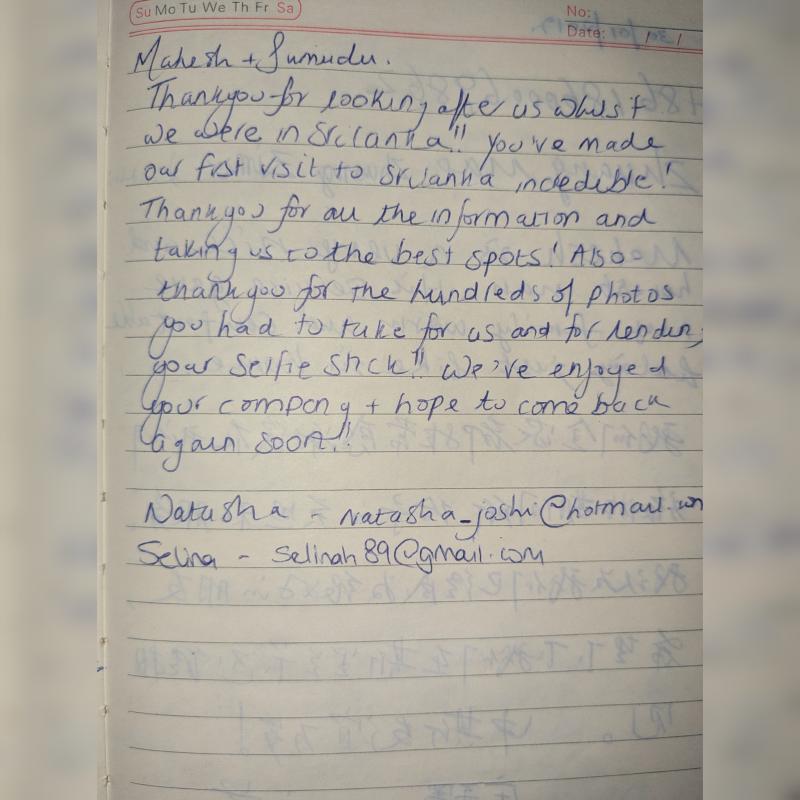 Su Mo Tu We Th Fr Sa
No:
Date: / /
Mahesh + Sumudu.
Thankyou for looking after us whilst
we were in Sri Lanka!! You've made
our first visit to Sri Lanka incredible!
Thankyou for all the information and
taking us to the best spots! Also
thankyou for the hundreds of photos
you had to take for us and for lending
your selfie stick!! We've enjoyed
your company + hope to come back
again soon!!
Natasha - natasha_joshi@hotmail.com
Selina - selinah89@gmail.com